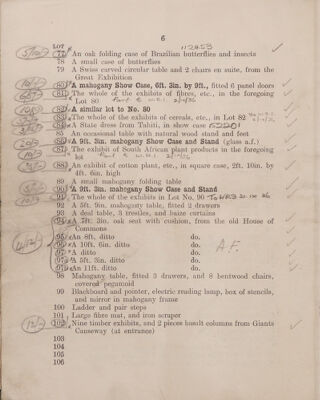 6
LOT
112453
77 An oak folding case of Brazilian butterflies and insects
78 A small case of butterflies
79 A Swiss carved circular table and 2 chairs en suite, from the
Great Exhibition
80 A mahogany Show Case, 6ft. 3in. by 9ft., fitted 6 panel doors
81 The whole of the exhibits of fibres, etc., in the foregoing
Lot 80
82 A similar lot to No. 80
83 The whole of the exhibits of cereals, etc., in Lot 82
84 A State dress from Tahiti, in show case
85 An occasional table with natural wood stand and feet
86 A 9ft. 3in. mahogany Show Case and Stand (glass a.f.)
87 The exhibit of South African plant products in the foregoing
lot
88 An exhibit of cotton plant, etc., in square case, 2ft. 10in. by
4ft. 6in. high
89 A small mahogany folding table
90 A 9ft. 3in. mahogany Show Case and Stand
91 The whole of the exhibits in Lot No. 90
92 A 5ft. 9in. mahogany table, fitted 2 drawers
93 A deal table, 3 trestles, and baize curtains
94 A 7ft. 3in. oak seat with cushion, from the old House of
Commons
95 An 8ft. ditto do.
96 A 10ft. 6in. ditto do. A.F.
97 A ditto do.
97A A 5ft. 3in. ditto do.
97B An 11ft. ditto do.
98 Mahogany table, fitted 3 drawers, and 8 bentwood chairs,
covered pegamoid
99 Blackboard and pointer, electric reading lamp, box of stencils,
and mirror in mahogany frame
100 Ladder and pair steps
101 Large fibre mat, and iron scraper
102 Nine timber exhibits, and 2 pieces basalt columns from Giants
Causeway (at entrance)
103
104
105
106